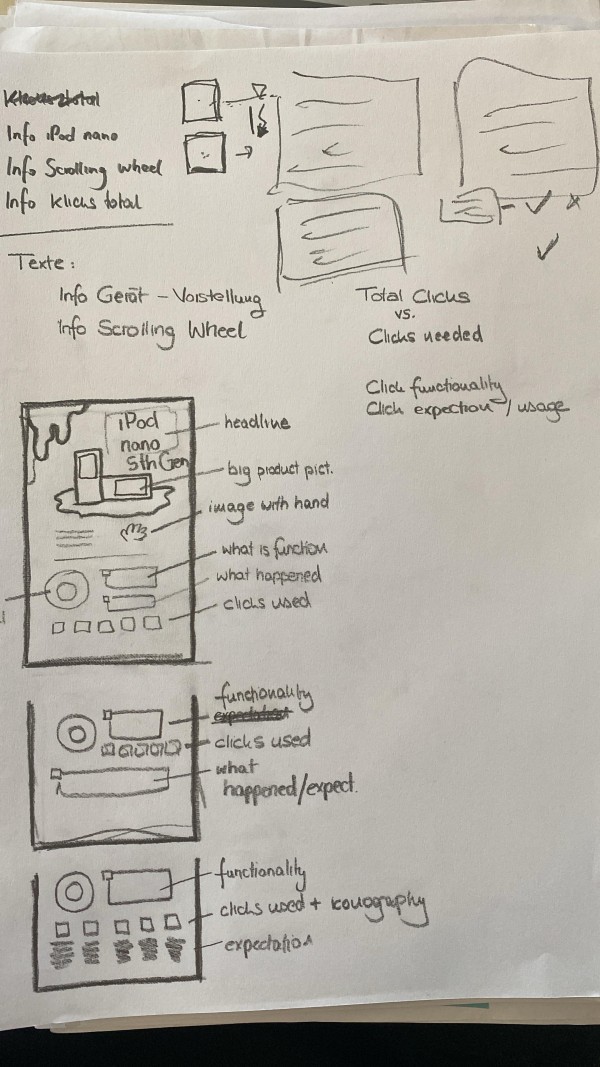 Info iPod nano
Info Scrolling wheel
Info Klicks total
Texte:
Info Gerät - Vorstellung
Info Scrolling Wheel
Total Clicks
vs.
Clicks needed
Click functionality
Click expection / usage
iPod
nano
5th Gen
headline
big product pict.
image with hand
what is function
what happened
clicks used
functionality
clicks used
what
happened/expect.
functionality
clicks used + iconography
expectation